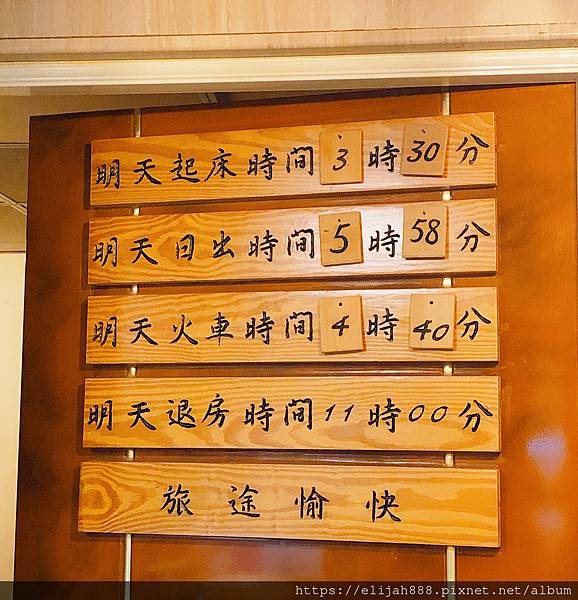 明天起床時間3時30分
明天日出時間5時58分
明天火車時間4時40分
明天退房時間11時00分
旅途愉快
https://elijah888.pixnet.net/album